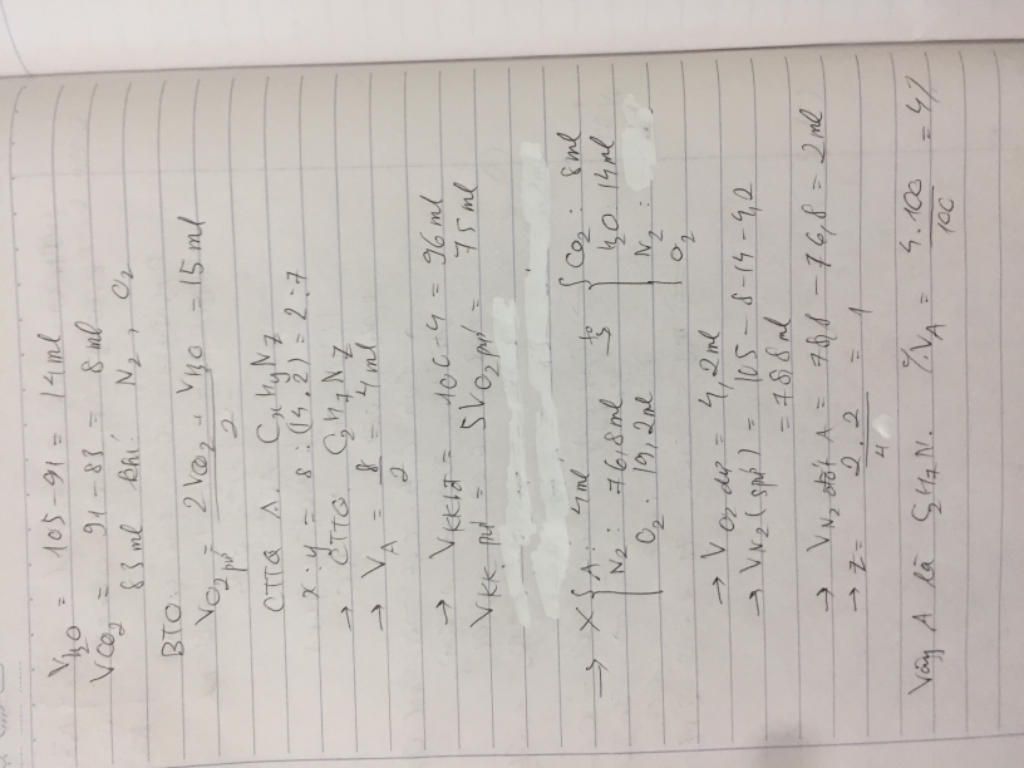 V H2O = 105-91 = 14ml
VCO2 = 91-83 = 8ml
83ml khí: N2, O2
BTO:
VO2 pứ = (2VCO2 + VH2O)/2 = 15ml
CTTQ A: CxHyNz
x:y = 8:(14.2) = 2:7
→ CTTQ C2H7Nz
→ VA = 8/2 = 4ml
→ VKKbđ = 100-4 = 96ml
VKK pứ = 5VO2 pứ = 75ml
→ X { A: 4ml CO2: 8ml
N2: 76,8ml →t° H2O: 14ml
O2: 19,2ml N2:
O2
→ VO2 dư = 4,2ml
→ VN2 (spứ) = 105-8-14-4,2
= 78,8ml
→ VN2 đốt A = 78,8 - 76,8 = 2ml
→ z = 2.2/4 = 1
Vậy A là C2H7N. %VA = 4.100/100 = 4%